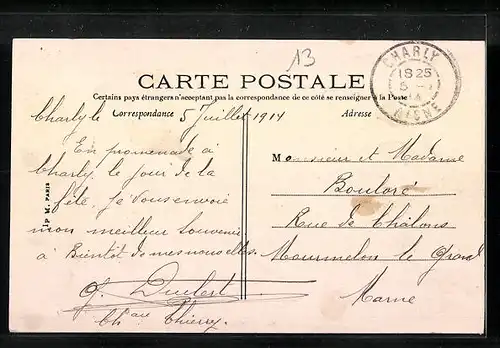 13
CHARLY
18 25
5 - 7
14
AISNE
CARTE POSTALE
Certains pays étrangers n'acceptant pas la correspondance de ce côté se renseigner à la Poste
Correspondance
Adresse
Charly le 5 Juillet 1914
En promenade à
Charly. le jour de la
fête. je vous envoie
mon meilleur Souvenir
à Bientôt de mes nouvelles.
Chau Thierry.
Monsieur et Madame
Rue de Châlons
Mourmelon le Grand
Marne
IP M. PARIS